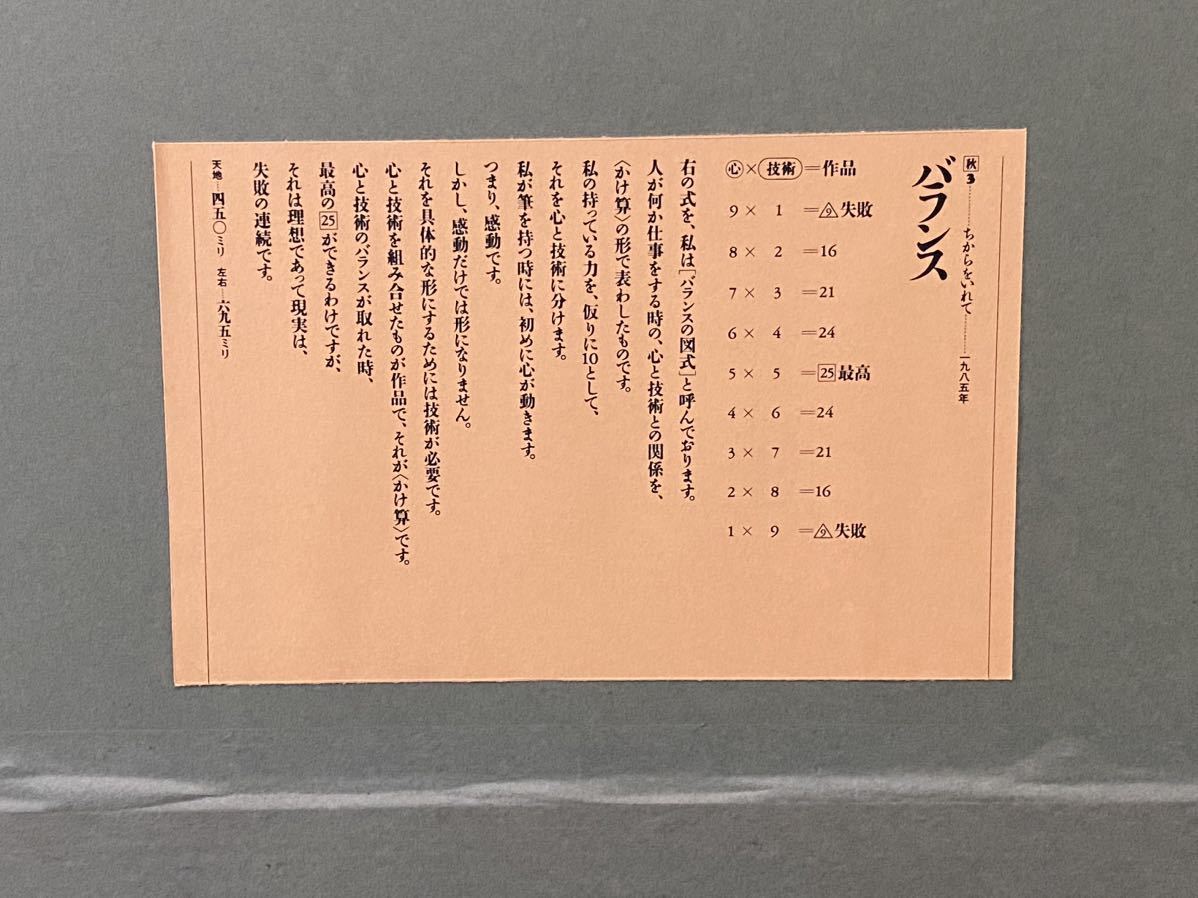 秋3………ちからをいれて………一九八五年
バランス
心×技術=作品
9×1=9失敗
8×2=16
7×3=21
6×4=24
5×5=25最高
4×6=24
3×7=21
2×8=16
1×9=9失敗
右の式を、私は[バランスの図式]と呼んでおります。
人が何か仕事をする時の、心と技術との関係を、
〈かけ算〉の形で表わしたものです。
私の持っている力を、仮りに10として、
それを心と技術に分けます。
私が筆を持つ時には、初めに心が動きます。
つまり、感動です。
しかし、感動だけでは形になりません。
それを具体的な形にするためには技術が必要です。
心と技術を組み合せたものが作品で、それが〈かけ算〉です。
心と技術のバランスが取れた時、
最高の25ができるわけですが、
それは理想であって現実は、
失敗の連続です。
天地…四五〇ミリ 左右…六九五ミリ